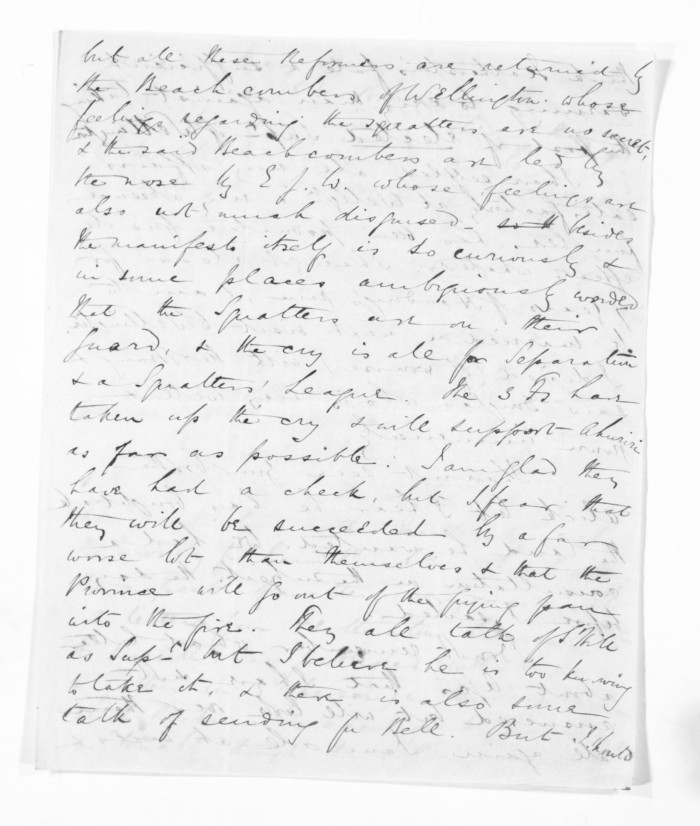 but all these Reformers are returned by
the Beach combers of Wellington whose
feelings regarding the squatters are no secret,
& the said Beachcombers are led by
the nose by E J. W. whose feelings are
also not much disguised - besides
the manifesto itself is so curiously &
in some places ambiguously worded
that the Squatters are on their
guard, & the cry is all for Separation
& a Squatters' League. The 3 Fs have
taken up the cry & will support Ahuriri
as far as possible. I am glad they
have had a check, but I fear that
they will be succeeded by a far
worse lot than themselves & that the
Province will go out of the frying pan
into the fire. They all talk of St Hill
as Supt but I believe he is too knowing
to take it, & there is also some
talk of sending for Bell. But I should